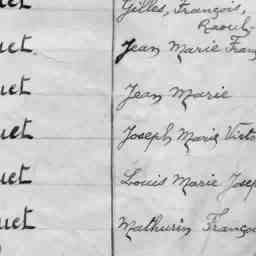 uet Gilles, François,
Raoul
uet Jean Marie Fran
uet Jean Marie
uet Joseph Marie Victo
uet Louis Marie Josep
uet Mathurin Françoi